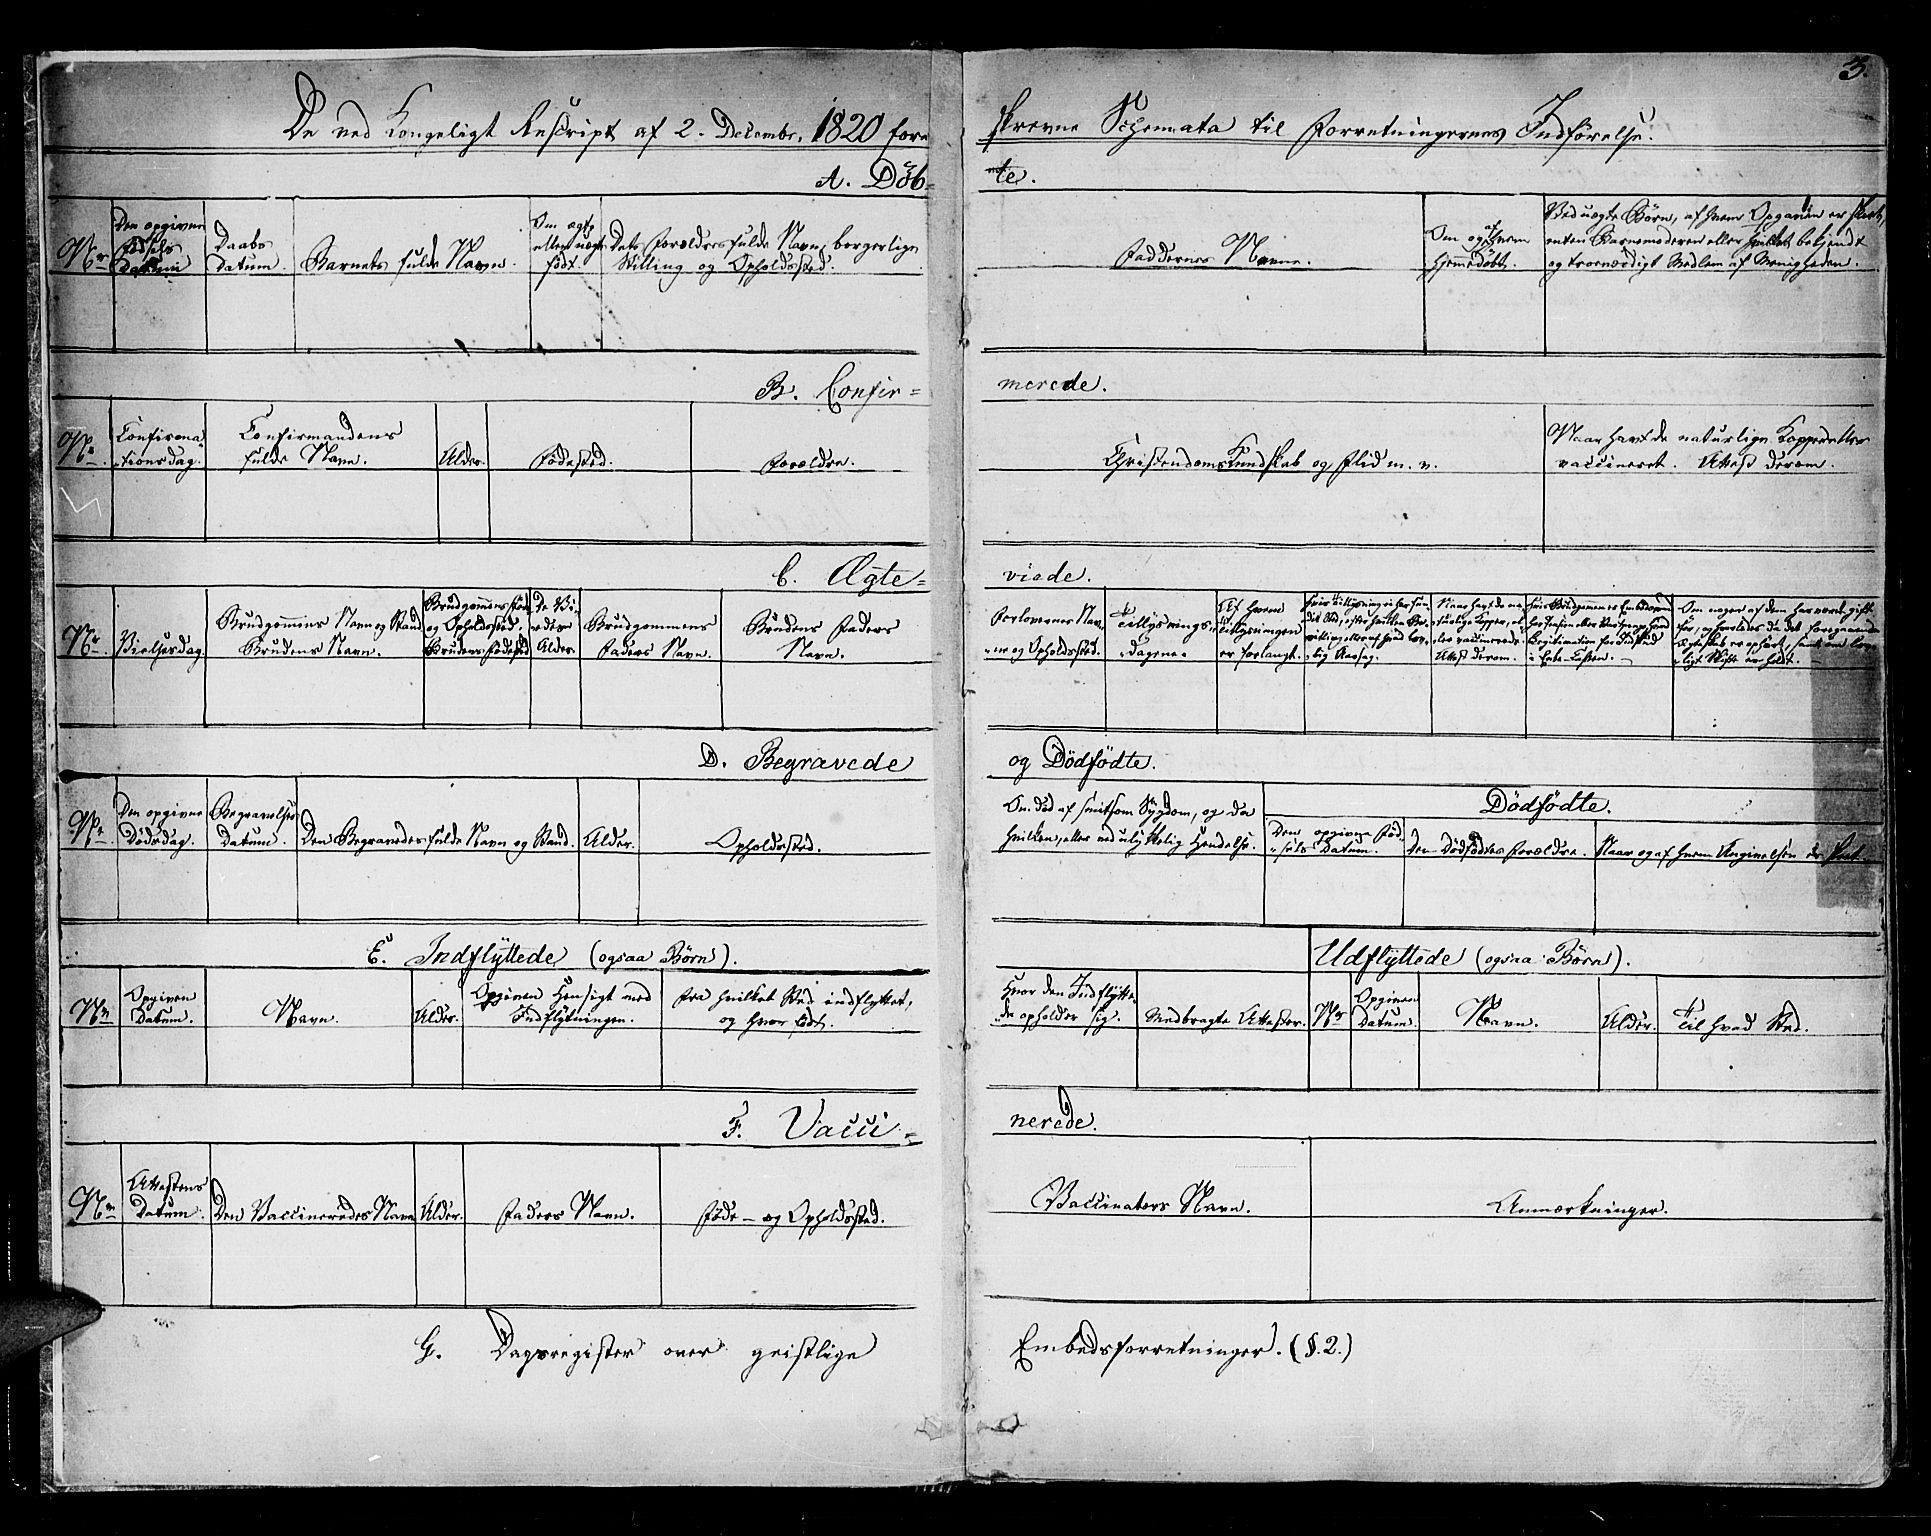 3.
De ved Kongeligt Rescript af 2. Decembr. 1820 fore
skrevne Schemata til Forretningernes Indförelse.
A. Döb=
te.
Nr
Den opgivne
Fødsels
Datum
Daabs
Datum.
Barnets fulde Navn.
Om ægte
eller uægte
født.
Dets Forældres fulde Navne, borgerlige
Stilling og Opholdssted.
Faddernes Navne.
Om og af hvem
hjemmedöbt.
Ved uægte Børn, af hvem Opgaven er skeet,
enten Barnemoderen eller hvilket bekjendt
og troværdigt Medlem af Menigheden.
B. Confir=
merede.
Nr.
Confirma
tionsdag.
Confirmandens
fulde Navn.
Alder.
Fødested.
Forældre.
Christendoms Kundskab og Flid m. v.
Naar havt de naturlige Kopper eller
vaccineret. Attest derom.
C. Ægte=
viede.
Nr
Vielsesdag
Brudgommens Navn og Stand
Brudens Navn.
Brudgommens Føde
og Opholdssted.
Brudens Fødested
De Vi-
edes
Alder.
Brudgommens
Faders Navn.
Brudens Faders
Navn.
Forlovernes Nav
ne og Opholdssted.
Tillysnings
Dagene
Af hvem
Tillysningen
er forlangt.
Naar havt de na
turlige Kopper, el
ler vaccinerede.
Attest derom.
Om nogen af dem har været gift
før, og hvorledes da det foregaaende
Ægteskab er ophørt, samt om lov
ligt Skifte er holdt.
D. Begravede
og Dödfödte.
Nr.
Den opgivne
Dödsdag.
Begravelses
Datum.
Den Begravedes fulde Navn og Stand.
Alder.
Opholdssted.
Om död af smitsom Sygdom, og da
hvilken, eller ved ulykkelig Hendelse.
Dödfödte.
Den opgivne Föd
sels Datum.
Den Dödfödtes Forældre.
Naar og af hvem Angivelsen er skeet.
E. Indflyttede (ogsaa Børn).
Udflyttede (ogsaa Børn).
Nr
Opgiven
Datum.
Navn.
Alder.
Opgiven Hensigt med
Indflytningen.
Fra hvilket Sted indflyttet,
og hvor født.
Hvor den Indflytte
de opholder sig.
Medbragte Attester.
Nr
Opgiven
Datum.
Navn.
Alder.
Til hvad Sted.
F. Vacci=
nerede.
Nr
Attestens
Datum.
Den Vaccineredes Navn
Alder.
Faders Navn.
Føde- og Opholdssted.
Vaccinators Navn.
Anmærkninger.
G. Dagsregister over geistlige
Embedsforretninger. (§. 2.)